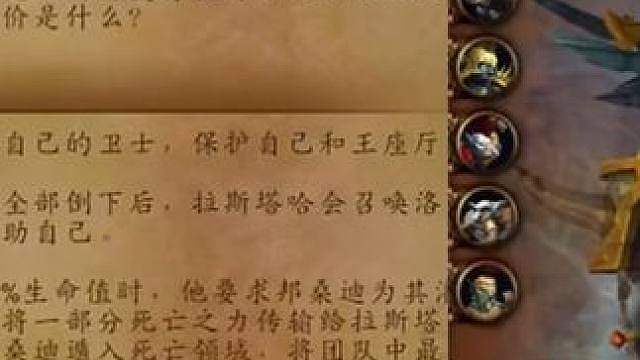 价是什么?
自己的卫士，保护自己和王座厅
全部倒下后，拉斯塔哈会召唤洛
助自己。
%生命值时，他要求邦桑迪为其
将一部分死亡之力传输给拉斯塔
桑迪遁入死亡领域，将团队中最